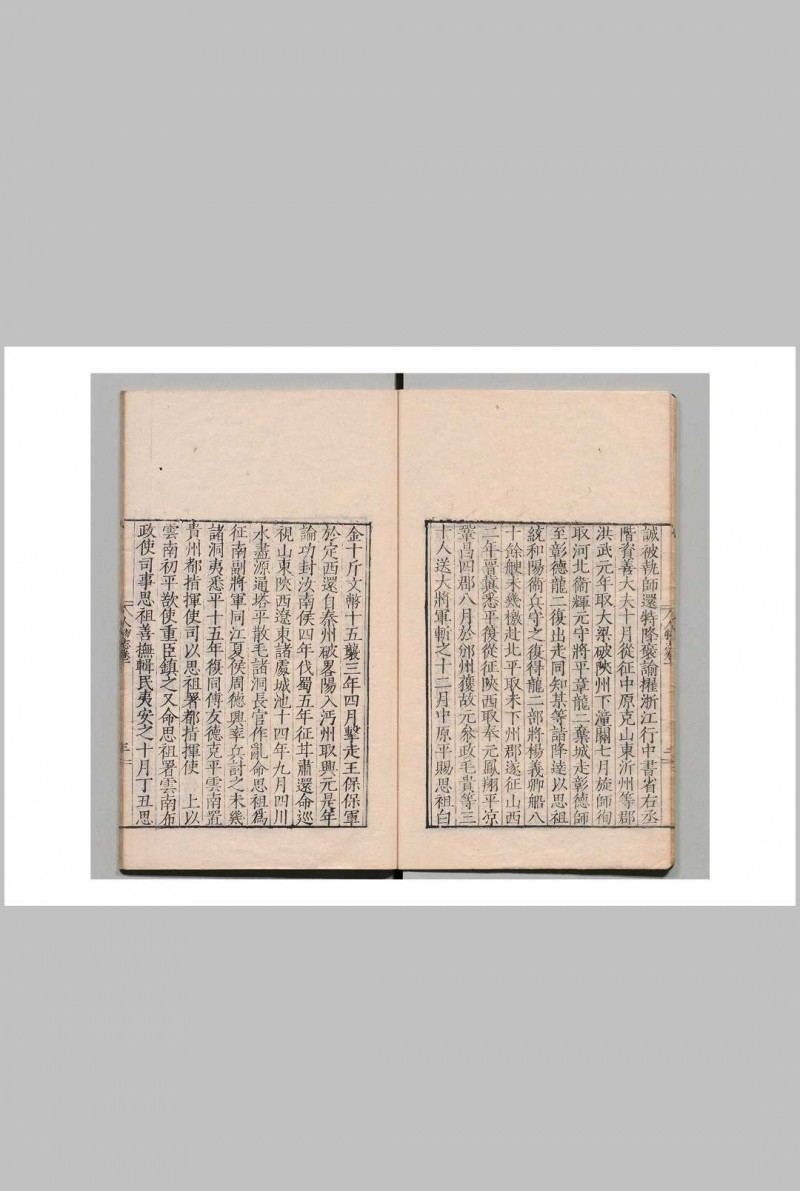 誠被執師還特降褒諭擢浙江行中書省右丞
階資善大夫十月從征中原克山東沂州等郡
洪武元年取大梁破陝州下潼關七月旋師徇
取河北衛輝元守將平章龍二棄城走彰德師
至彰德龍二復出走同知某等詣降達以思祖
統和陽衛兵守之復得龍二部將楊義卿船八
十餘艘未幾檄赴北平取未下州郡遂征山西
二年晉冀悉平復從征陝西取奉元鳳翔平涼
鞏昌四郡八月於邠州獲故元叅政毛貴等三
十人送大將軍斬之十二月中原平賜思祖白
金十斤文幣十五襲三年四月擊走王保保軍
於定西還自秦州破畧陽入沔州取興元是年
論功封汝南侯四年伐蜀五年征甘肅還命巡
視山東陝西遼東諸處城池十四年九月四川
水盡源通塔平散毛諸洞長官作亂命思祖爲
征南副將軍同江夏侯周德興率兵討之未幾
諸洞夷悉平十五年復同傅友德克平雲南置
貴州都指揮使司以思祖署都指揮使 上以
雲南初平欲使重臣鎮之又命思祖署雲南布
政使司事思祖善撫輯民夷安之十月丁丑思